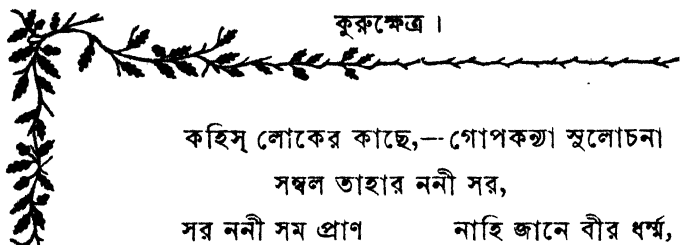 কুরুক্ষেত্র।
কহিস্ লোকের কাছে,—গোপকন্যা সুলোচনা
সম্বল তাহার ননী সর,
সর ননী সম প্রাণ নাহি জানে বীর ধর্ম্ম,